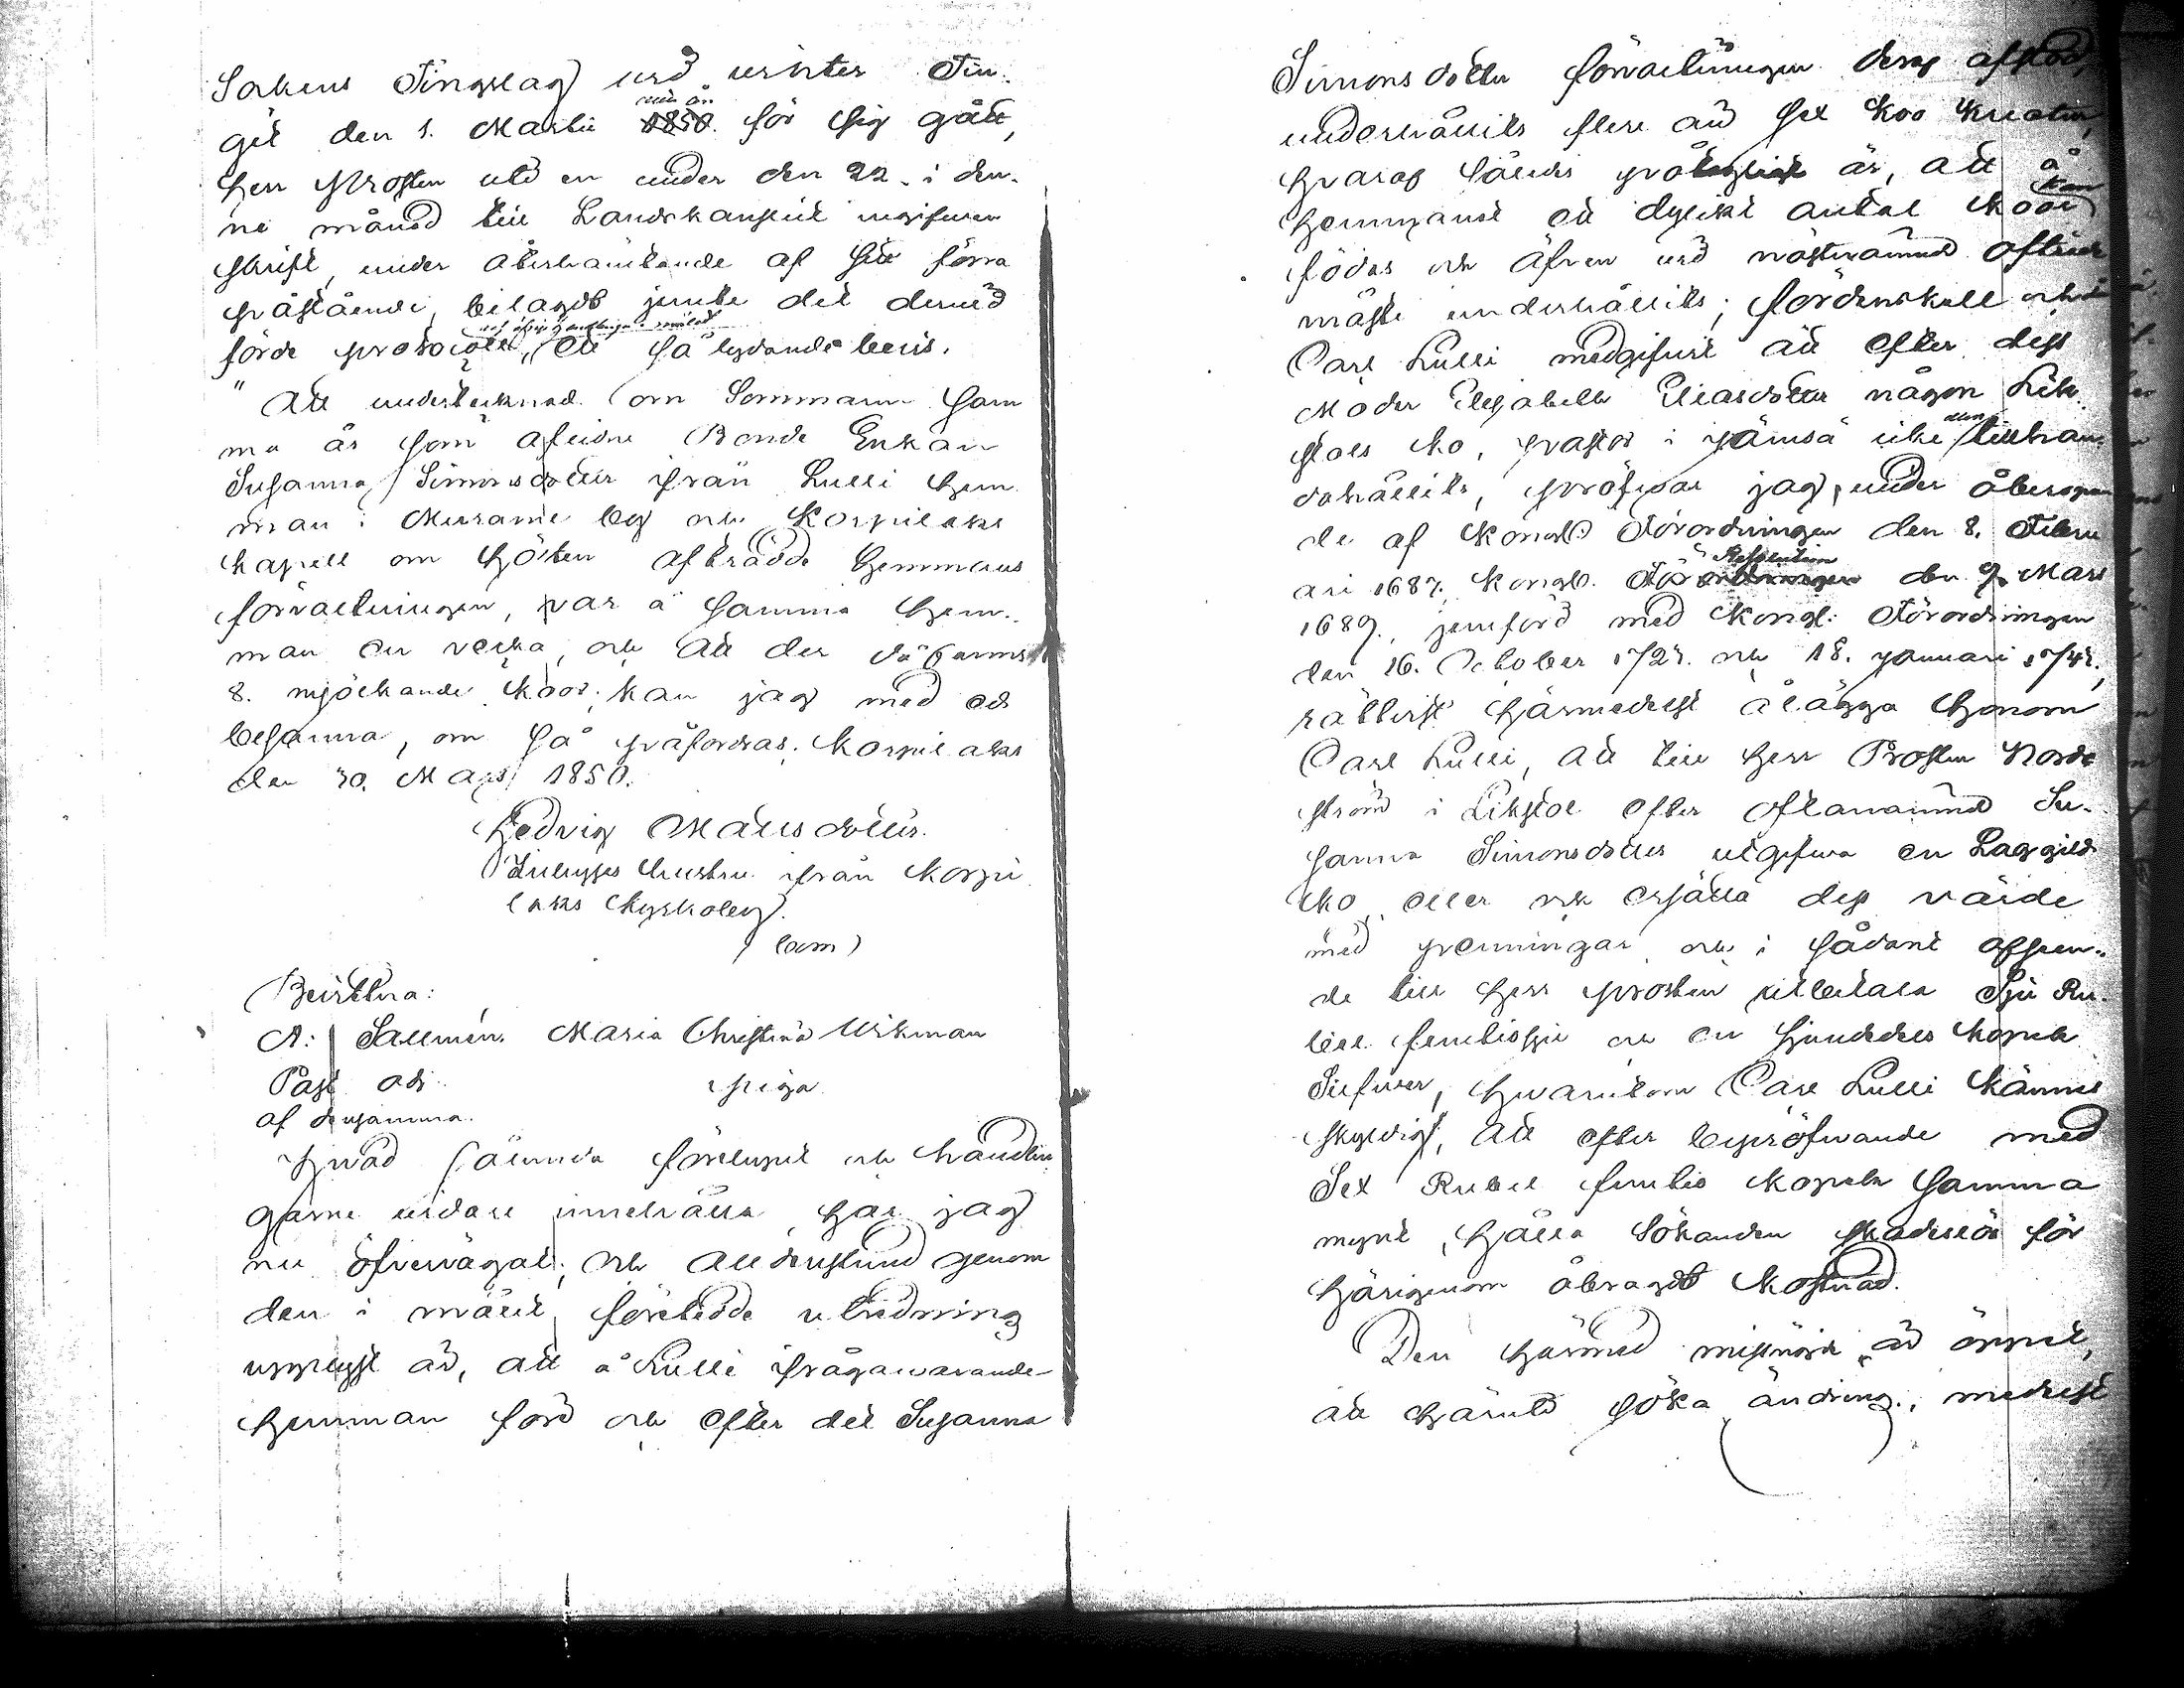 Sokens Tingslag vid vinter Tin-
get den 1. Martii 1850. för sig gått,
Herr Prosten uti en under den 22. i den-
na månad till Landskansliet ingifven
skrift, under återhämtande af sitt förra
påstående, bilagdt jemte det dervid
förde protocoll, ett så lydande bevis.
"Att undertecknad om Sommarn sam
ma år som afledne Bonde Enkan
Susanna Simonsdotter ifrån Lulli hem-
man i Muurame by och Korpilaks
Kapell om hösten afträdde hemmans
förvaltningen, var å samma hem-
man en vecka, och att der då fanns
8. mjölkande Koor, kan jag med ed
besanna, om så påfordras. Korpilaks
den 30. Mars 1850.
Hedvig Mattsdotter.
Inhyses hustru ifrån Korpi
laks Kyrkoby.
(bom)
Bevittna:
A: Sallmén. Maria Christina Wikman
Past. adj. piga
af Susanna.
Hvad sålunda förelupit och handlin
garne vidare innehålla, har jag
nu öfvervägat; och alldenstund genom
den i målet företedde utredning
upplyst är, att å Lulli ifrågavarande
hemman förr och efter det Susanna
Simonsdotter förvaltningen deraf afstod,
underhållits flere än sex Koo Kreatur,
hvaraf således är, att å
hemmanet ett dylikt antal Koor kan
födas och äfven vid nästnämnde afträde
måste underhållits; fördenskull och då
Carl Lulli medgifvit att efter dess
Moder Elisabeth Eliasdotter någon Lik
stols ko, Pastor i Jämsä icke tillhan-
dahållits, pröfvar jag, under åberopan
de af Kongl. Förordningen den 8. Febru
ari 1687. Kongl. Resolution den 9. Mars
1689., jemförd med Kongl: Förordningen
den 16. October 1723. och 18. Januari 1742,
rättvist härmedelst ålägga honom
Carl Lulli, att till Herr Prosten Nord
ström i Likstol efter oftanämnde Su-
sanna Simonsdotter utgifva en Laggild
Ko, eller ock ersätta dess värde
med penningar och i sådant afseen-
de till Herr Prosten utbetala Sju Ru-
bel femtiosju och en hjundedels Kopek
Silfver, hvarutom Carl Lulli kännes
skyldig, att efter bepröfvande med
Sex Rubel femtio Kopek samma
mynt, hålla Sökanden skadeslös för
härigenom åbragdt kostnad.
Den härmed missnöjd är öppet,
att häruti söka ändring, medelst